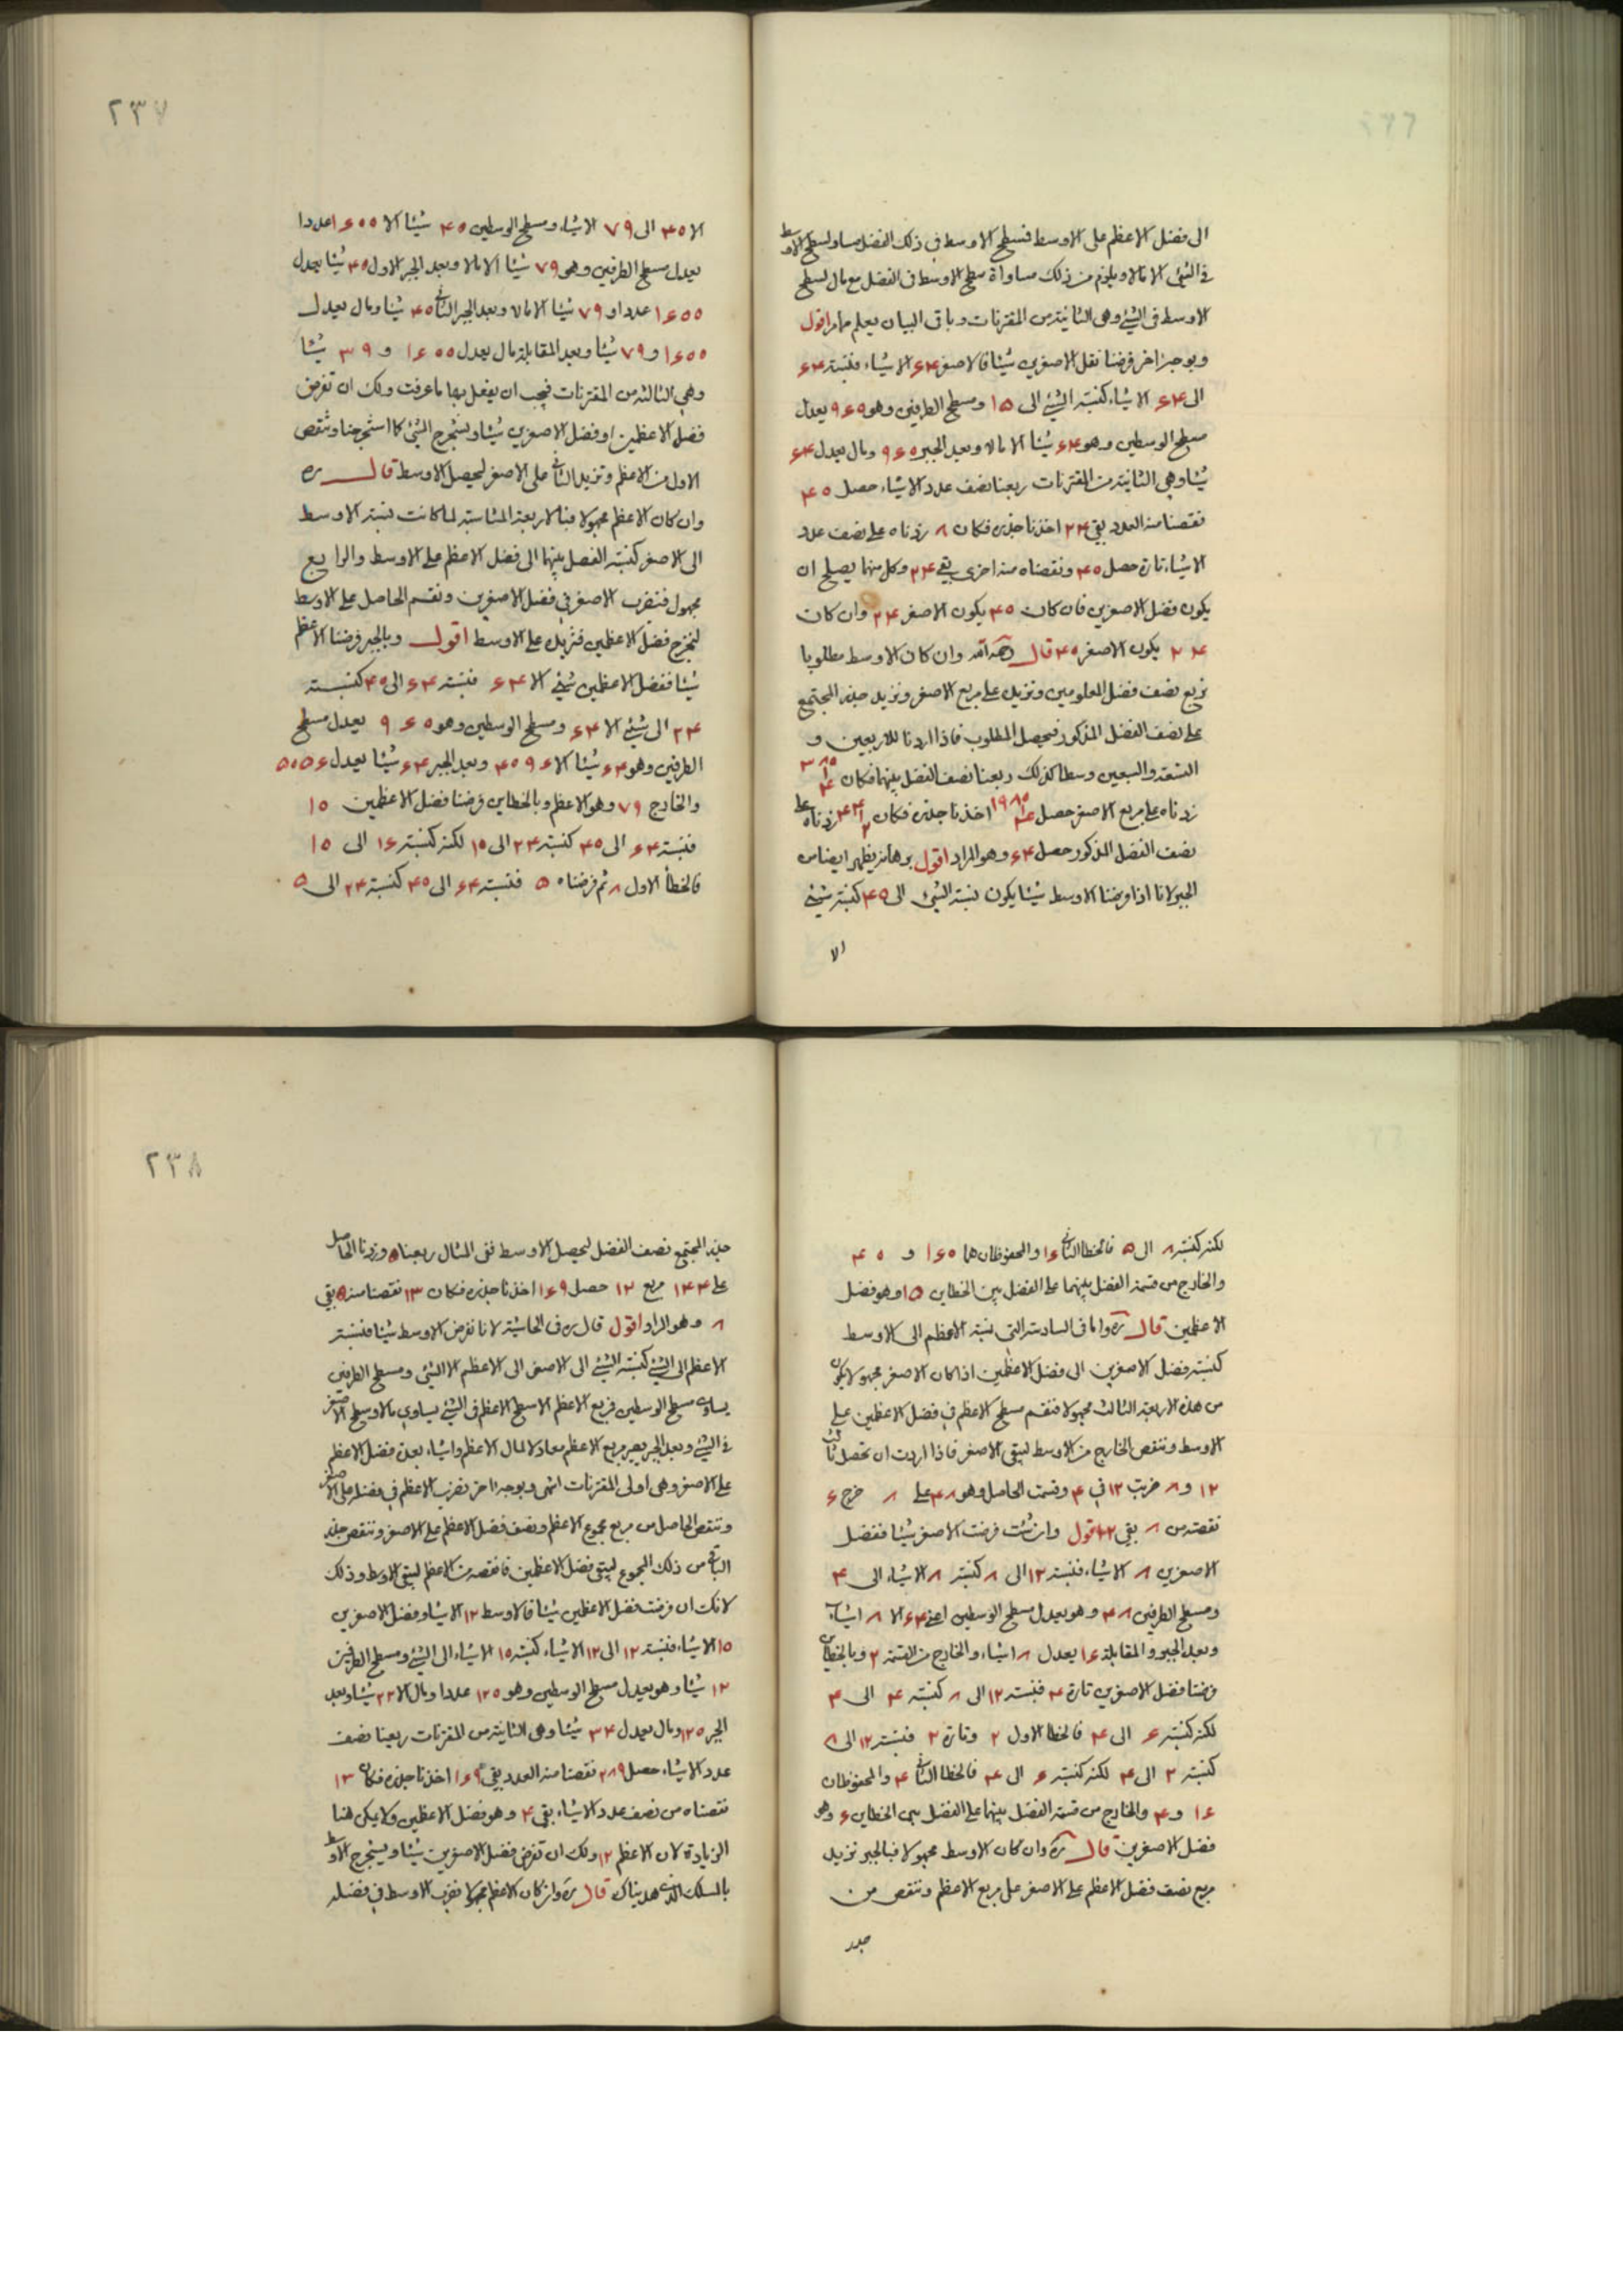 الى فضل الاعظم على الاوسط فسطح الاوسط فى ذلك الفضل مساو لسطح الاوسط
فى الشئ الا مالا ويلزم من ذلك مساواة سطح الاوسط فى الفضل مع مال لسطح
الاوسط فى الشئ وهى الثانية من المقترنات وباقى البيان يعلم مما مر اقول
وبوجه اخر فرضنا فضل الاصغرين شيئا فالاصغر ۶۴ الا شيئا، فنسبة ۶۴
الى ۶۴ الا شيئا، كنسبة الشئ الى ۱۵ ومسطح الطرفين وهو ۹۶۰ يعدل
مسطح الوسطين وهو ۶۴ شيئا الا مالا وبعد الجبر ۹۶۰ ومال يعدل ۶۴
شيئا وهى الثانية من المقترنات ربعنا نصف عدد الاشياء حصل
نقصنا منه العدد بقى ۶۴ اخذنا جذره فكان ۸ زدناه على نصف عدد
الاشياء تارة حصل ۴۰ ونقصناه منه اخرى بقى ۲۴ وكل منهما يصلح ان
يكون فضل الاصغرين فان كان ۴۰ يكون الاصغر ۲۴ وان كان
۲۴ يكون الاصغر ۴۰ قال وان كان الاوسط مطلوبا
نربع نصف فضل المعلومين ونزيده على مربع الاصغر ونزيد جذر المجتمع
على نصف الفضل المذكور فيحصل المطلوب فاذا اردنا للاربعين و
التسعة والسبعين وسطا كذلك ربعنا نصف الفضل بينهما فكان
زدناه على مربع الاصغر حصل اخذنا جذره فكان زدناه على
نصف الفضل المذكور حصل ۶۴ وهو المراد اقول برهانه يظهر ايضا من
الجبر لانا اذا فرضنا الاوسط شيئا يكون نسبة الشئ الى ۴۰ كنسبة شئ
الا
۲۳۷
الا ۴۰ الى ۷۹ الا شيئا، ومسطح الوسطين ۴۰ شيئا الا ۱۶۰۰ عددا
يعدل مسطح الطرفين وهو ۷۹ شيئا الا مالا وبعد الجبر الاول ۴۰ شيئا يعدل
۱۶۰۰ عددا و ۷۹ شيئا الا مالا وبعد الجبر الثانى ۴۰ شيئا ومال يعدل
۱۶۰۰ و ۷۹ شيئا وبعد المقابلة مال يعدل ۱۶۰۰ و ۳۹ شيئا
وهى الثالثة من المقترنات فيجب ان يفعل بها ما عرفت ولك ان تفرض
فضل الاعظمين او فضل الاصغرين شيئا وتستخرج الشئ كما استخرجنا وتنقص
الاول من الاعظم وتزيد الثانى على الاصغر ليحصل الاوسط قال ره
وان كان الاعظم مجهولا فبالاربعة المتناسبة لما كانت نسبة الاوسط
الى الاصغر كنسبة الفضل بينهما الى فضل الاعظم على الاوسط والرابع
مجهول فنضرب الاصغر فى فضل الاصغرين ونقسم الحاصل على الاوسط
ليخرج فضل الاعظمين فنزيده على الاوسط اقول وبالجبر فرضنا الاعظم
شيئا ففضل الاعظمين شئ الا ۶۴ فنسبة ۶۴ الى ۴۰ كنسبة
۲۴ الى شئ الا ۶۴ ومسطح الوسطين وهو ۹۶۰ يعدل مسطح
الطرفين وهو ۶۴ شيئا الا ۴۰۹۶ وبعد الجبر ۶۴ شيئا يعدل ۵۰۵۶
والخارج ۷۹ وهو الاعظم وبالخطاين فرضنا فضل الاعظمين ۱۰
فنسبة ۶۴ الى ۴۰ كنسبة ۲۴ الى ۱۵ لكنه كنسبة ۱۶ الى ۱۰
فالخطأ الاول ۸ ثم فرضناه ۵ فنسبة ۶۴ الى ۴۰ كنسبة ۲۴ الى ۵
لكنه كنسبة ۸ الى ۵ فالخطا الثانى ۱۶ والمحفوظان هما ۱۶۰ و ۴۰
والخارج من قسمة الفضل بينهما على الفضل بين الخطاين ۱۵ وهو فضل
الاعظمين قال ره واما فى السادسة التى نسبة الاعظم الى الاوسط
كنسبة فضل الاصغرين الى فضل الاعظمين اذا كان الاصغر مجهولا يكون
من هذه الاربعة الثالث مجهولا فنقسم مسطح الاعظم فى فضل الاعظمين على
الاوسط وننقص الخارج من الاوسط ليبقى الاصغر فاذا اردت ان تحصل ثالث
۱۲ و ۸ ضربت ۱۲ فى ۴ وقسمت الحاصل وهو ۴۸ على ۸ خرج ۶
نقصته من ۸ بقى ۲ اقول وان شئت فرضت الاصغر شيئا ففضل
الاصغرين ۸ الا شيئا، فنسبة ۱۲ الى ۸ كنسبة ۸ الا شيئا، الى ۴
ومسطح الطرفين ۴۸ وهو يعدل مسطح الوسطين اعنى ۶۴ الا ۸ اشياء
وبعد الجبر والمقابلة ۱۶ يعدل ۸ اشياء والخارج من القسمة ۲ وبالخطاين
فرضنا فضل الاصغرين تارة ۴ فنسبة ۱۲ الى ۸ كنسبة ۴ الى ۴
لكنه كنسبة ۶ الى ۴ فالخطا الاول ۲ وتارة ۲ فنسبة ۱۲ الى ۸
كنسبة ۲ الى ۴ لكنه كنسبة ۶ الى ۴ فالخطا الثانى ۴ والمحفوظان
۱۶ و ۴ والخارج من قسمة الفضل بينهما على الفضل بين الخطاين ۶ وهو
فضل الاصغرين قال ره وان كان الاوسط مجهولا فبالجبر نزيد
مربع نصف فضل الاعظم على الاصغر على مربع الاعظم وننقص من
جذر
۲۳۸
جذر المجتمع نصف الفضل ليحصل الاوسط ففى المثال ربعنا ۵ وزدنا الحاصل
على ۱۴۴ مربع ۱۲ حصل ۱۶۹ اخذنا جذره فكان ۱۳ نقصنا منه ۵ بقى
۸ وهو المراد اقول قال ره فى الحاشية لانا نفرض الاوسط شيئا فنسبة
الاعظم الى الشئ كنسبة الشئ الى الاصغر الى الاعظم الا الشئ ومسطح الطرفين
يساوى مسطح الوسطين فربع الاعظم الا مسطح الاعظم فى الشئ يساوى مالا ومسطح الاصغر
فى الشئ وبعد الجبر يصير مربع الاعظم معادلا لمال الاعظم واشياء بعدة فضل الاعظم
على الاصغر وهى اولى المقترنات انتهى وبوجه اخر نضرب الاعظم فى فضله على الاصغر
وننقص الحاصل من مربع مجموع الاعظم ونصف فضل الاعظم على الاصغر وننقص جذر
الباقى من ذلك المجموع ليبقى فضل الاعظمين فانقصه من الاعظم ليبقى الاوسط وذلك
لانك ان فرضت فضل الاعظمين شيئا فالاوسط ۱۲ الا شيئا وفضل الاصغرين
۱۰ الا شيئا، فنسبة ۱۲ الى ۱۲ الا شيئا، كنسبة ۱۰ الا شيئا، الى الشئ ومسطح الطرفين
۱۲ شيئا وهو يعدل مسطح الوسطين وهو ۱۲۰ عددا ومال الا ۲۲ شيئا وبعد
الجبر ۱۲۰ ومال يعدل ۳۴ شيئا وهى الثانية من المقترنات ربعنا نصف
عدد الاشياء حصل ۲۸۹ نقصنا منه العدد بقى ۱۶۹ اخذنا جذره فكان ۱۳
نقصناه من نصف عدد الاشياء بقى ۴ وهو فضل الاعظمين ولا يمكن هنا
الزيادة لان الاعظم ۱۲ ولك ان تفرض فضل الاصغرين شيئا وتستخرج الاوسط
بالمسلك الذى هديناك قال ره وان كان الاعظم مجهولا فنضرب الاوسط فى فضله